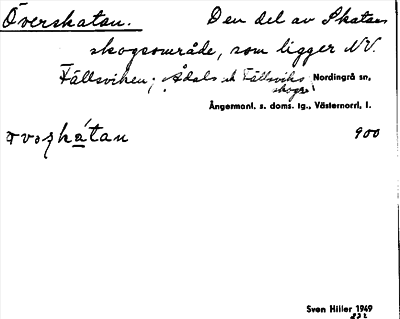 Överskatan. Den del av Skatan
skogsområde, som ligger NV.
Fällsviken; Ådals ok Fällsviks Nordingrå sn,
skogar
Ångermanl. s. doms. tg., Västernorrl, l.
900
Sven Hiller 1949